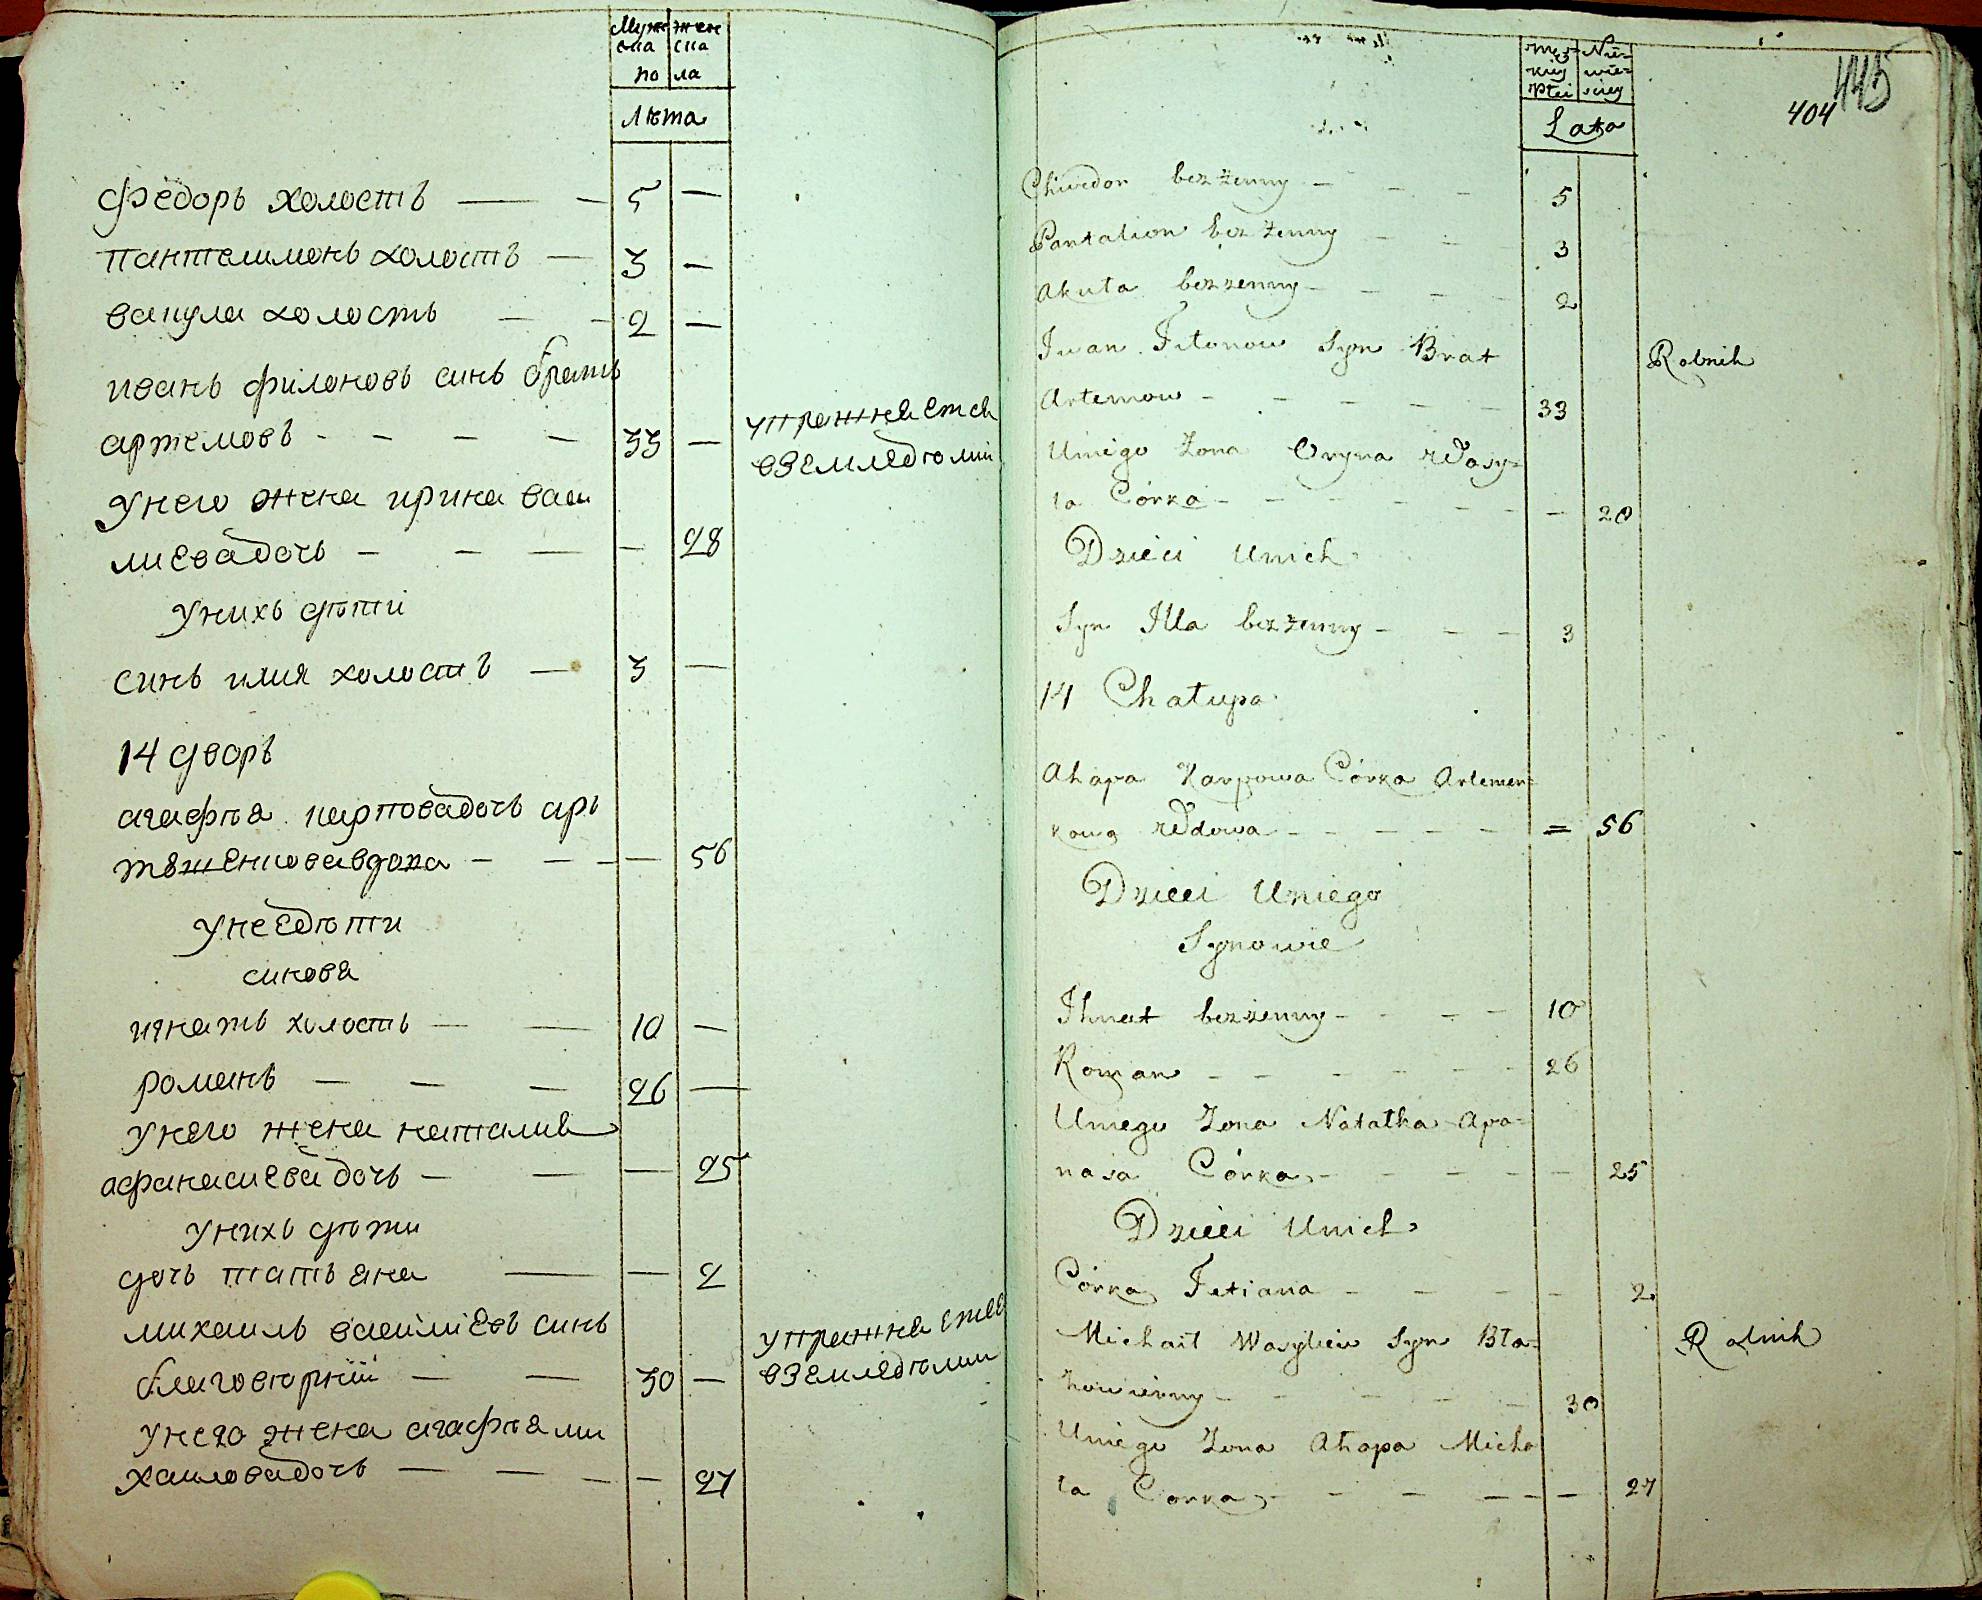 Муж жен
ска ска
по ла
Лѣта
федоръ холостъ — — 5 —
пантелимонъ холостъ — 3 —
вакула холостъ — — 2 —
иванъ филоновъ синъ братъ
артемовъ - - - - 33 — упражнѣется
в земледѣлии
унего жена ирина васи
лиева дочь — — — — 28
унихъ дѣти
синъ илия холостъ — 3 —
14 дворъ
агафѣя карпова дочь арь
тѣшенкова вдова — — — — 56
унее дѣти
синовя
игнатъ холостъ — — 10 —
романъ — — — 26 —
унего жена наталия
афанасиева дочь — — — 25
унихъ дѣти
дочь татьяна — — 2
михаилъ васильевъ синъ упражняется
благовѣрній — — 30 — в земледѣлии
унего жена агафѣя ми
хаилова дочь — — — — 27
Męz- Nie-
kiey wie-
Płci sciey
Lata
404 445
Chwedor bezżenny - - - 5
Pantalion bezżenny - - 3
Akuła bezżenny - - - 2
Iwan Filonow Syn Brat Rolnik
Artemow - - - - - 33
Uniego Żona Oryna Wasy-
la Córka - - - - - - - 28
Dzieci Unich
Syn Illa bezżenny - - - 3
14 Chałupa
Ahapa Karpowa Córka Artemen-
kowa Wdowa - - - - - = 56
Dzieci Uniego
Synowie
Ihnat bezżenny - - - - 10
Roman - - - - - - 26
Uniego Żona Natałka Apa-
nasa Córka - - - - - - 25
Dzieci Unich
Córka Tetiana - - - - - 2
Michaił Wasylew Syn Bła- Rolnik
howierny - - - - - 30
Uniego Żona Ahapa Micha
ła Corka - - - - - - 27